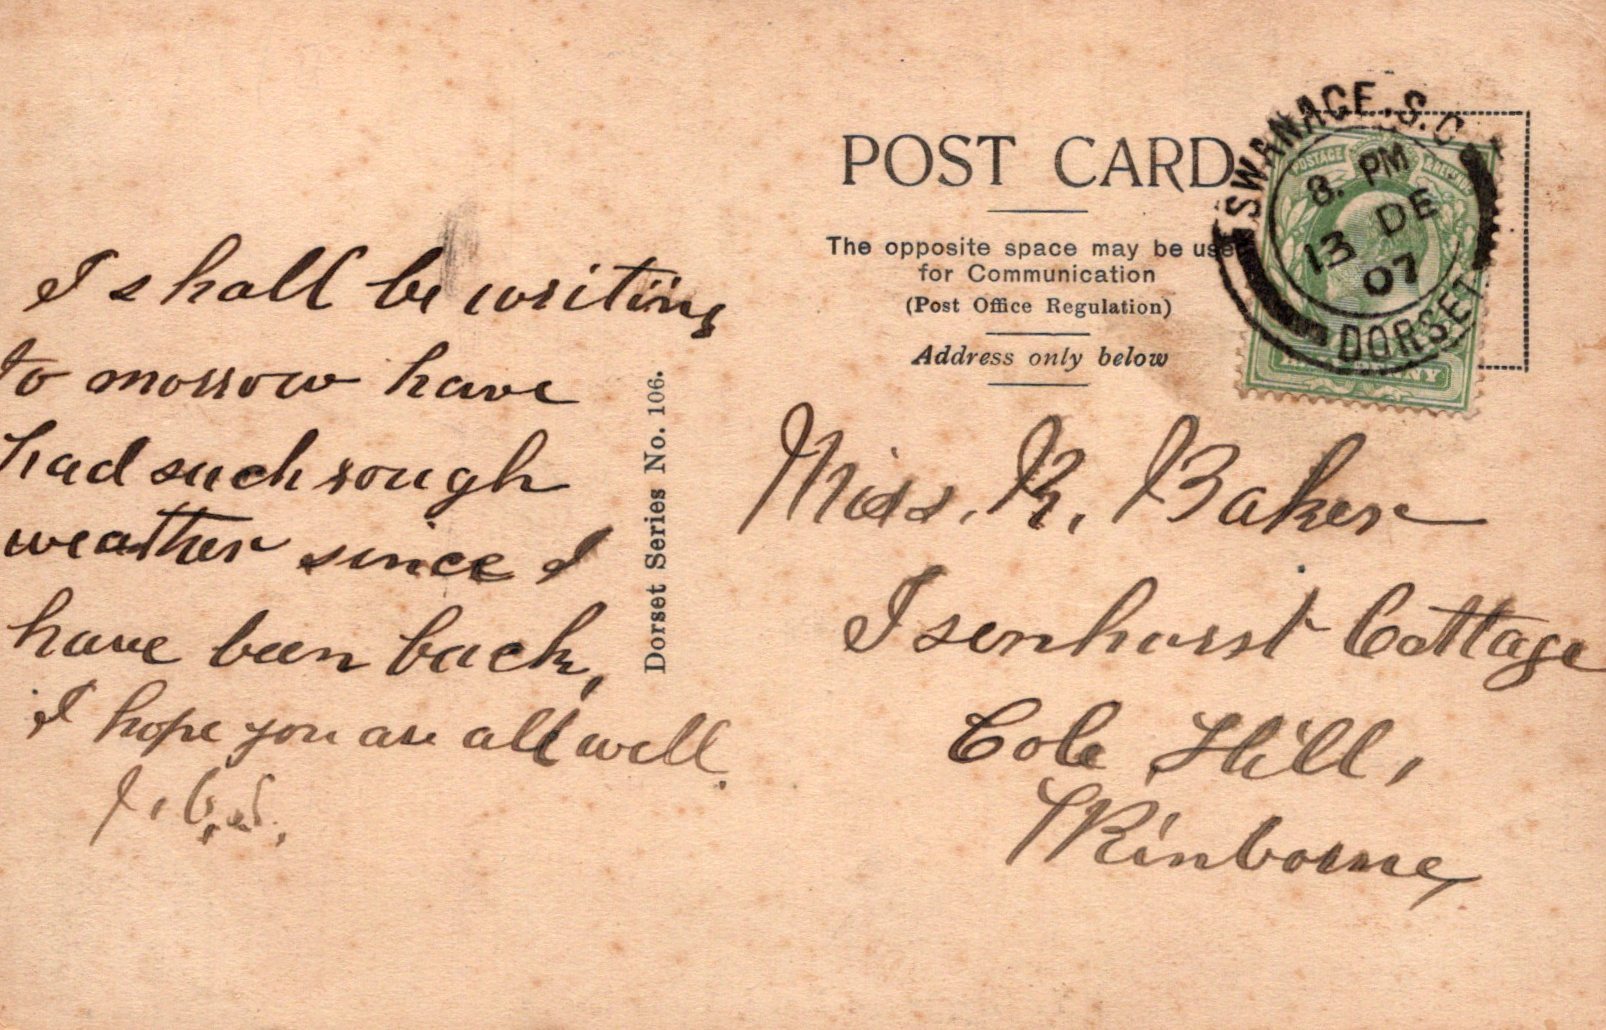 I shall be writing
to morrow have
had such rough
weather since I
have been back,
I hope you are all well.
Dorset Series No. 106.
POST CARD
The opposite space may be use
for Communication
(Post Office Regulation)
Address only below
SWANAGE. S.O
8. PM
13 DE
07
DORSET
POSTAGE
Miss. K. Baker
Isenhurst Cottage
Cole Hill,
Winborne,